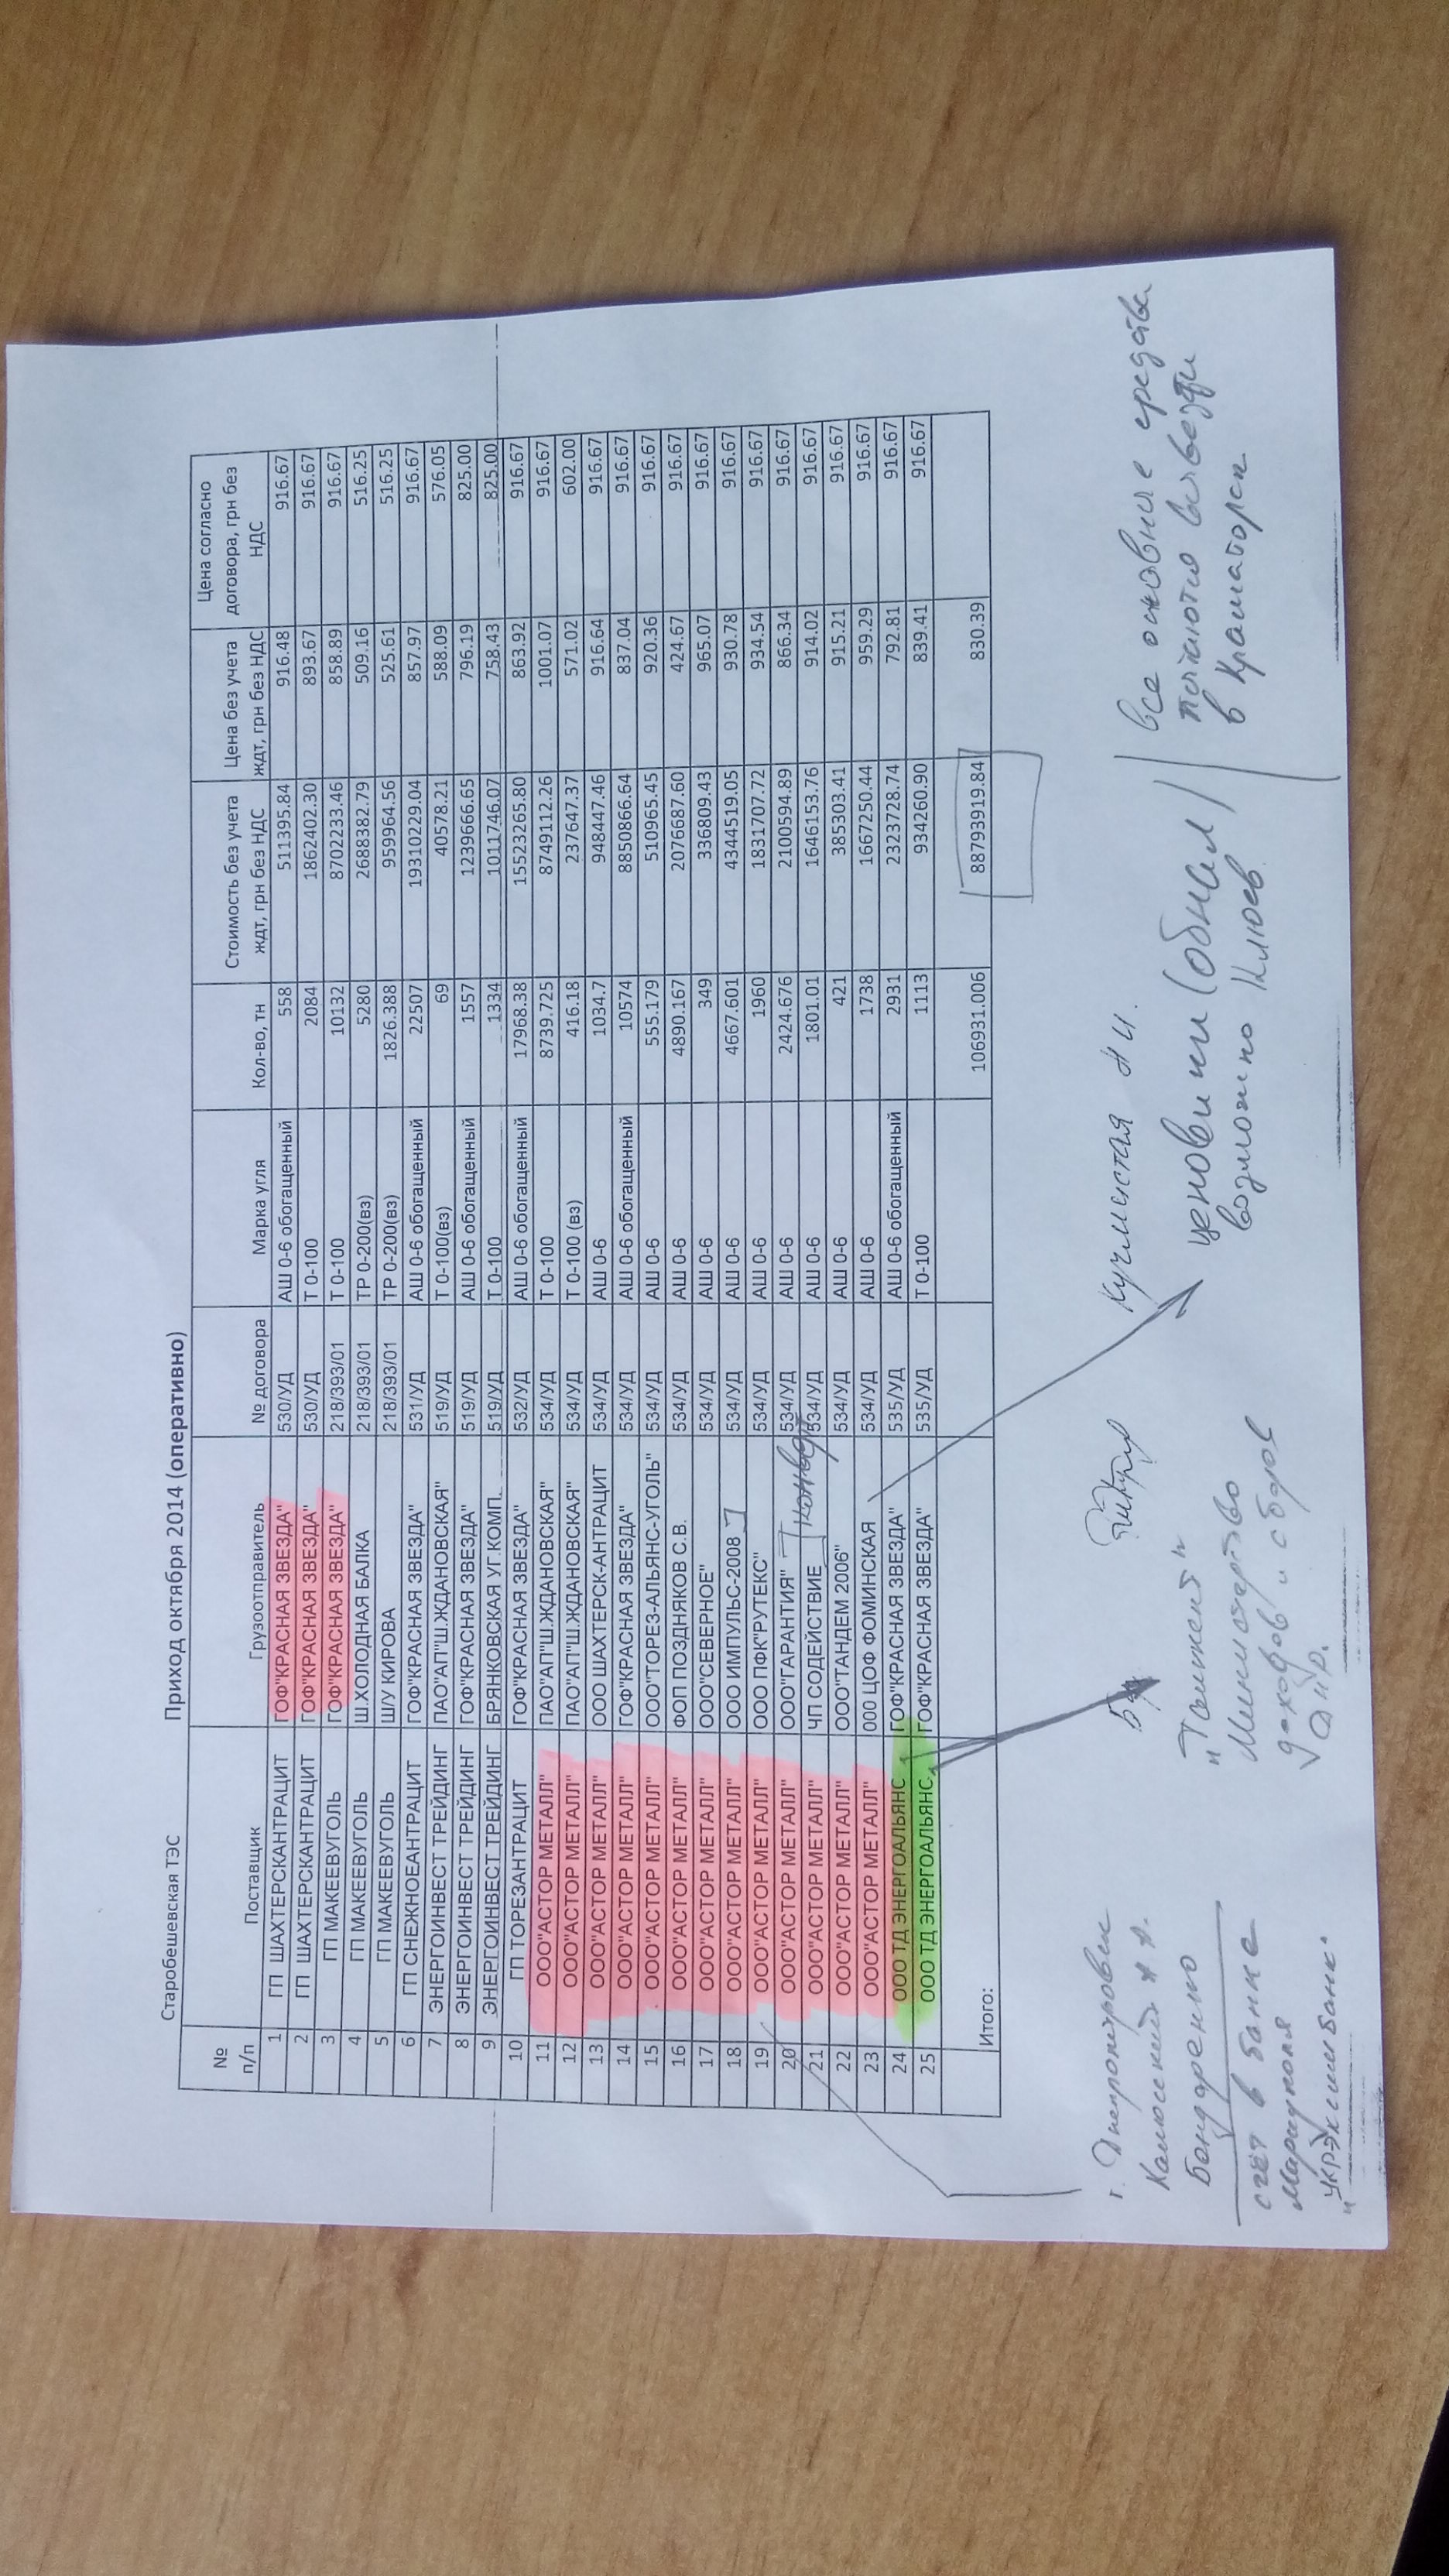 Старобешевская ТЭС Приход октября 2014 (оперативно)
№ п/п Поставщик Грузоотправитель № договора Марка угля Кол-во, тн Стоимость без учета ждт, грн без НДС Цена без учета ждт, грн без НДС Цена согласно договора, грн без НДС
1 ГП ШАХТЕРСКАНТРАЦИТ ГОФ"КРАСНАЯ ЗВЕЗДА" 530/УД АШ 0-6 обогащенный 558 511395.84 916.48 916.67
2 ГП ШАХТЕРСКАНТРАЦИТ ГОФ"КРАСНАЯ ЗВЕЗДА" 530/УД Т 0-100 2084 1862402.30 893.67 916.67
3 ГП МАКЕЕВУГОЛЬ ГОФ"КРАСНАЯ ЗВЕЗДА" 218/393/01 Т 0-100 10132 8702233.46 858.89 916.67
4 ГП МАКЕЕВУГОЛЬ Ш.ХОЛОДНАЯ БАЛКА 218/393/01 ТР 0-200(вз) 5280 2688382.79 509.16 516.25
5 ГП МАКЕЕВУГОЛЬ Ш/У КИРОВА 218/393/01 ТР 0-200(вз) 1826.388 959964.56 525.61 516.25
6 ГП СНЕЖНОЕАНТРАЦИТ ГОФ"КРАСНАЯ ЗВЕЗДА" 531/УД АШ 0-6 обогащенный 22507 19310229.04 857.97 916.67
7 ЭНЕРГОИНВЕСТ ТРЕЙДИНГ ПАО"АП"Ш.ЖДАНОВСКАЯ" 519/УД Т 0-100(вз) 69 40578.21 588.09 576.05
8 ЭНЕРГОИНВЕСТ ТРЕЙДИНГ ГОФ"КРАСНАЯ ЗВЕЗДА" 519/УД АШ 0-6 обогащенный 1557 1239666.65 796.19 825.00
9 ЭНЕРГОИНВЕСТ ТРЕЙДИНГ БРЯНКОВСКАЯ УГ.КОМП. 519/УД Т 0-100 1334 1011746.07 758.43 825.00
10 ГП ТОРЕЗАНТРАЦИТ ГОФ"КРАСНАЯ ЗВЕЗДА" 532/УД АШ 0-6 обогащенный 17968.38 15523265.80 863.92 916.67
11 ООО"АСТОР МЕТАЛЛ" ПАО"АП"Ш.ЖДАНОВСКАЯ" 534/УД Т 0-100 8739.725 8749112.26 1001.07 916.67
12 ООО"АСТОР МЕТАЛЛ" ПАО"АП"Ш.ЖДАНОВСКАЯ" 534/УД Т 0-100 (вз) 416.18 237647.37 571.02 602.00
13 ООО"АСТОР МЕТАЛЛ" ООО ШАХТЕРСК-АНТРАЦИТ 534/УД АШ 0-6 1034.7 948447.46 916.64 916.67
14 ООО"АСТОР МЕТАЛЛ" ГОФ"КРАСНАЯ ЗВЕЗДА" 534/УД АШ 0-6 обогащенный 10574 8850866.64 837.04 916.67
15 ООО"АСТОР МЕТАЛЛ" ООО"ТОРЕЗ-АЛЬЯНС-УГОЛЬ" 534/УД АШ 0-6 555.179 510965.45 920.36 916.67
16 ООО"АСТОР МЕТАЛЛ" ФОП ПОЗДНЯКОВ С.В. 534/УД АШ 0-6 4890.167 2076687.60 424.67 916.67
17 ООО"АСТОР МЕТАЛЛ" ООО"СЕВЕРНОЕ" 534/УД АШ 0-6 349 336809.43 965.07 916.67
18 ООО"АСТОР МЕТАЛЛ" ООО ИМПУЛЬС-2008 534/УД АШ 0-6 4667.601 4344519.05 930.78 916.67
19 ООО"АСТОР МЕТАЛЛ" ООО ПФК"РУТЕКС" 534/УД АШ 0-6 1960 1831707.72 934.54 916.67
20 ООО"АСТОР МЕТАЛЛ" ООО"ГАРАНТИЯ" 534/УД АШ 0-6 2424.676 2100594.89 866.34 916.67
конверт
21 ООО"АСТОР МЕТАЛЛ" ЧП СОДЕЙСТВИЕ 534/УД АШ 0-6 1801.01 1646153.76 914.02 916.67
22 ООО"АСТОР МЕТАЛЛ" ООО"ТАНДЕМ 2006" 534/УД АШ 0-6 421 385303.41 915.21 916.67
23 ООО"АСТОР МЕТАЛЛ" ООО ЦОФ ФОМИНСКАЯ 534/УД АШ 0-6 1738 1667250.44 959.29 916.67
24 ООО ТД ЭНЕРГОАЛЬЯНС ГОФ"КРАСНАЯ ЗВЕЗДА" 535/УД АШ 0-6 обогащенный 2931 2323728.74 792.81 916.67
25 ООО ТД ЭНЕРГОАЛЬЯНС ГОФ"КРАСНАЯ ЗВЕЗДА" 535/УД Т 0-100 1113 934260.90 839.41 916.67
Итого: 106931.006 88793919.84 830.39
г. Днепропетровск
Бондаренко
счёт в банке
Мариуполя
"Укрэксимбанк"
"Танжен"
Министерство
доходов и сборов
ДНР.
Кучмистая Н И.
(обнал)
возможно Клюев
все основные средства
в Краматорск